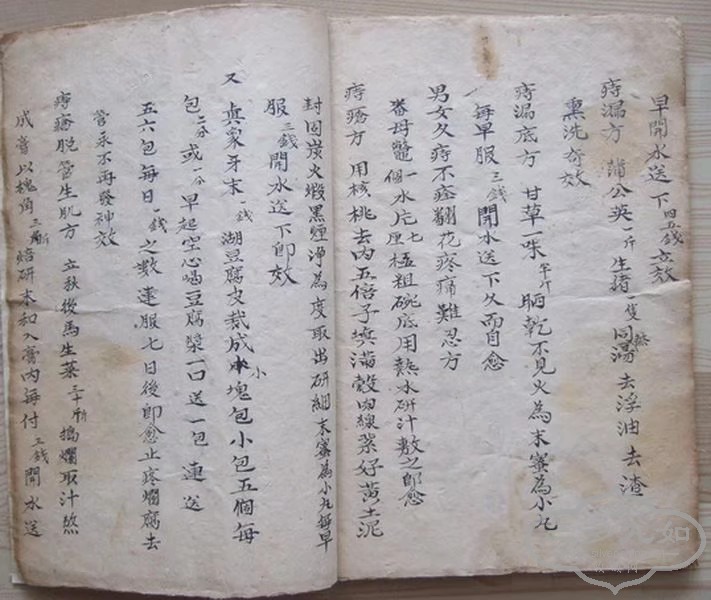 早開水送下四五錢立效
痔漏方 蒲公英一斤 生猪一隻 同湯熬去浮油去渣
熏洗奇效
痔漏底方 甘草一味半斤晒乾不見火為末蜜為小丸
每早服三錢開水送下久而自愈
男女久痔不痊翻花疼痛難忍方
番母鱉一個水片七厘極粗碗底用熱水研汁敷之即愈
痔瘡方 用核桃去肉五倍子填滿殼內線紮好黃土泥
封固炭火煅黑煙淨為度取出研細末蜜為小丸每早
服三錢開水送下即效
又 真象牙末一錢 湖豆腐皮裁成小塊包小包五個每
包二分或一分早起空心喝豆腐漿一口送一包連送
五六包每日一錢之數連服七日後即愈止疼爛腐去
管永不再發神效
痔瘡脫管生肌方 立秋後馬生菜三十斤搗爛取汁熬
成膏以槐角三斤焙研末和入膏內每付三錢開水送